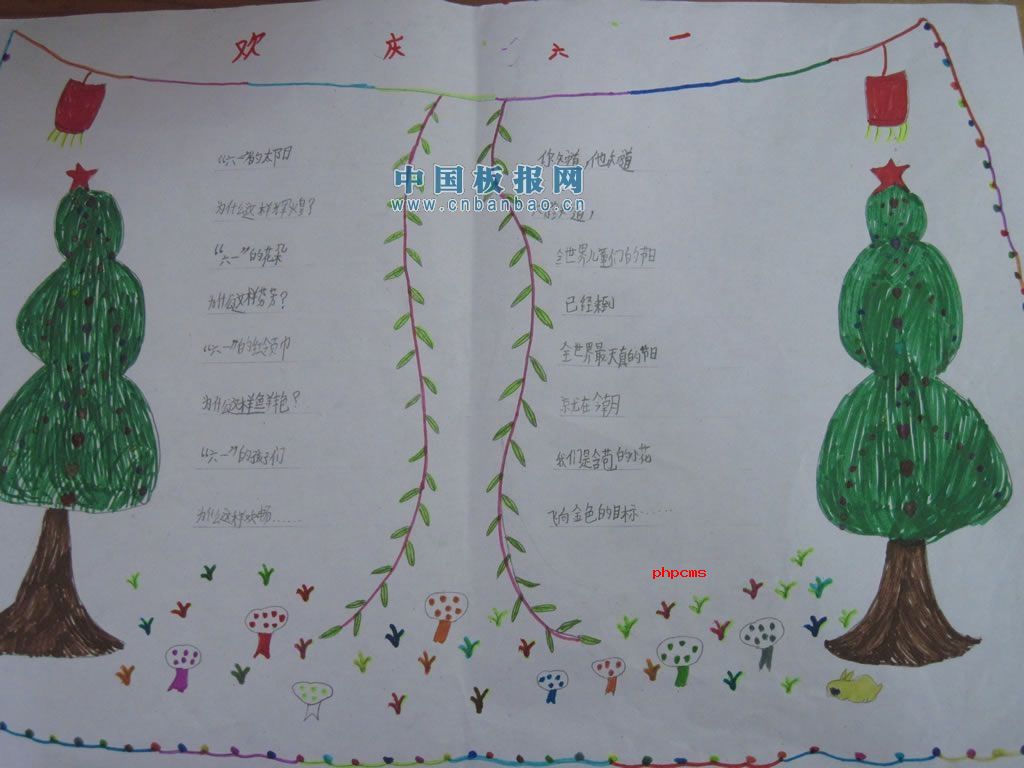 欢庆六一
“六一”的太阳
为什么这样辉煌？
“六一”的花朵
为什么这样芬芳？
“六一”的红领巾
为什么这样鲜艳？
“六一”的孩子们
为什么这样欢畅……
你知道，他知道
知道，
全世界儿童们的节日
已经来到
全世界最天真的节日
就在今朝
我们是含苞的小花
飞向金色的目标……
中国板报网
www.cnbanbao.cn
phpcms